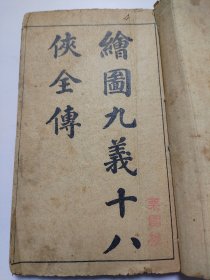 繪圖九義十八
俠全傳